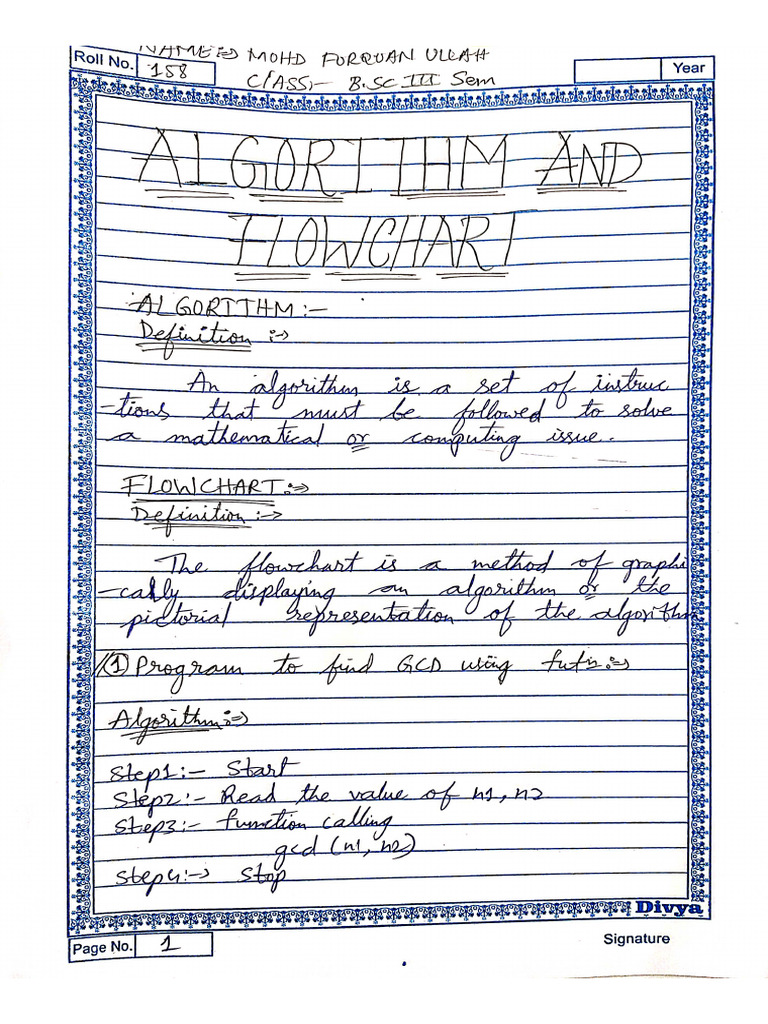 NAME:⇒ MOHD FURQUAN ULLAH
Roll No. 158
CLASS:- B.SC III Sem
Year
ALGORITHM AND
FLOWCHART
ALGORITHM:-
Definition :⇒
An algorithm is a set of instruc
-tions that must be followed to solve
a mathematical or computing issue.
FLOWCHART:⇒
Definition :→
The flowchart is a method of graphi
-cally displaying an algorithm or the
pictorial representation of the algorithm
(1) Program to find GCD using :⇒
Algorithm:⇒
Step1:- Start
Step2:- Read the value of n1, n2
Step3:- function calling
gcd (n1, n2)
Step4:→ Stop
Divya
Page No. 1
Signature